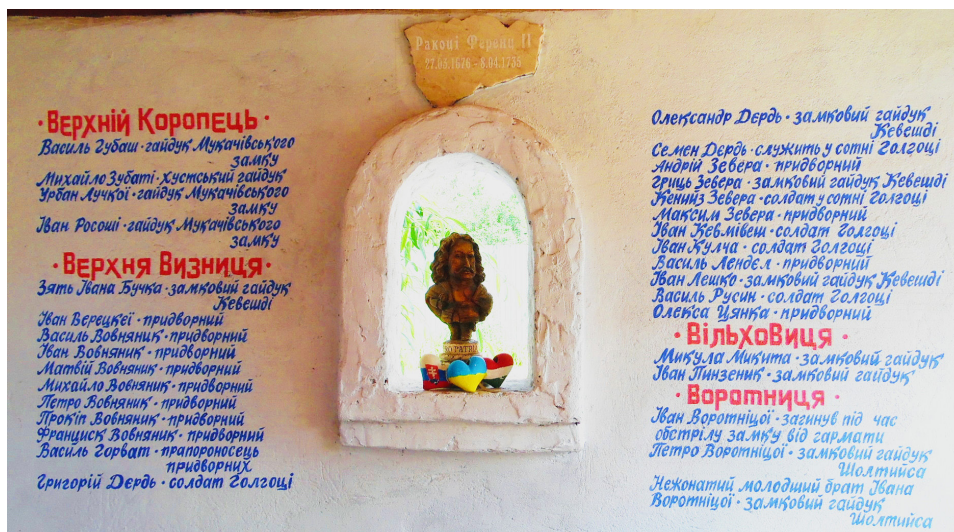 Ракоці Ференц II
27.03.1676 - 8.04.1735
· Верхній Коропець ·
Василь Губаш · гайдук Мукачівського
замку
Михайло Зубаті · хустський гайдук
Урбан Лучкої · гайдук Мукачівського
замку
Іван Росоші · гайдук Мукачівського
замку
· Верхня Визниця ·
Зять Івана Бучка · замковий гайдук
Кевешді
Іван Верецкеї · придворний
Василь Вовняник · придворний
Іван Вовняник · придворний
Матвій Вовняник · придворний
Михайло Вовняник · придворний
Петро Вовняник · придворний
Прокіп Вовняник · придворний
Франциск Вовняник · придворний
Василь Горват · прапороносець
придворних
Григорій Дєрдь · солдат Голгоці
Олександр Дєрдь · замковий гайдук
Кевешді
Семен Дєрдь · служить у сотні Голгоці
Андрій Зевера · придворний
Гриць Зевера · замковий гайдук Кевешді
Кенийз Зевера · солдат у сотні Голгоці
Максим Зевера · придворний
Іван Кевмівеш · солдат Голгоці
Іван Кулча · солдат Голгоці
Василь Лендєл · придворний
Іван Лешко · замковий гайдук Кевешді
Василь Русин · солдат Голгоці
Олекса Цянка · придворний
· Вільховиця ·
Микула Микита · замковий гайдук
Іван Пинзеник · замковий гайдук
· Воротниця ·
Іван Воротніцої · загинув під час
обстрілу замку від гармати
Петро Воротніцої · замковий гайдук
Шолтийса
Нежонатий молодший брат Івана
Воротніцої · замковий гайдук
Шолтийса